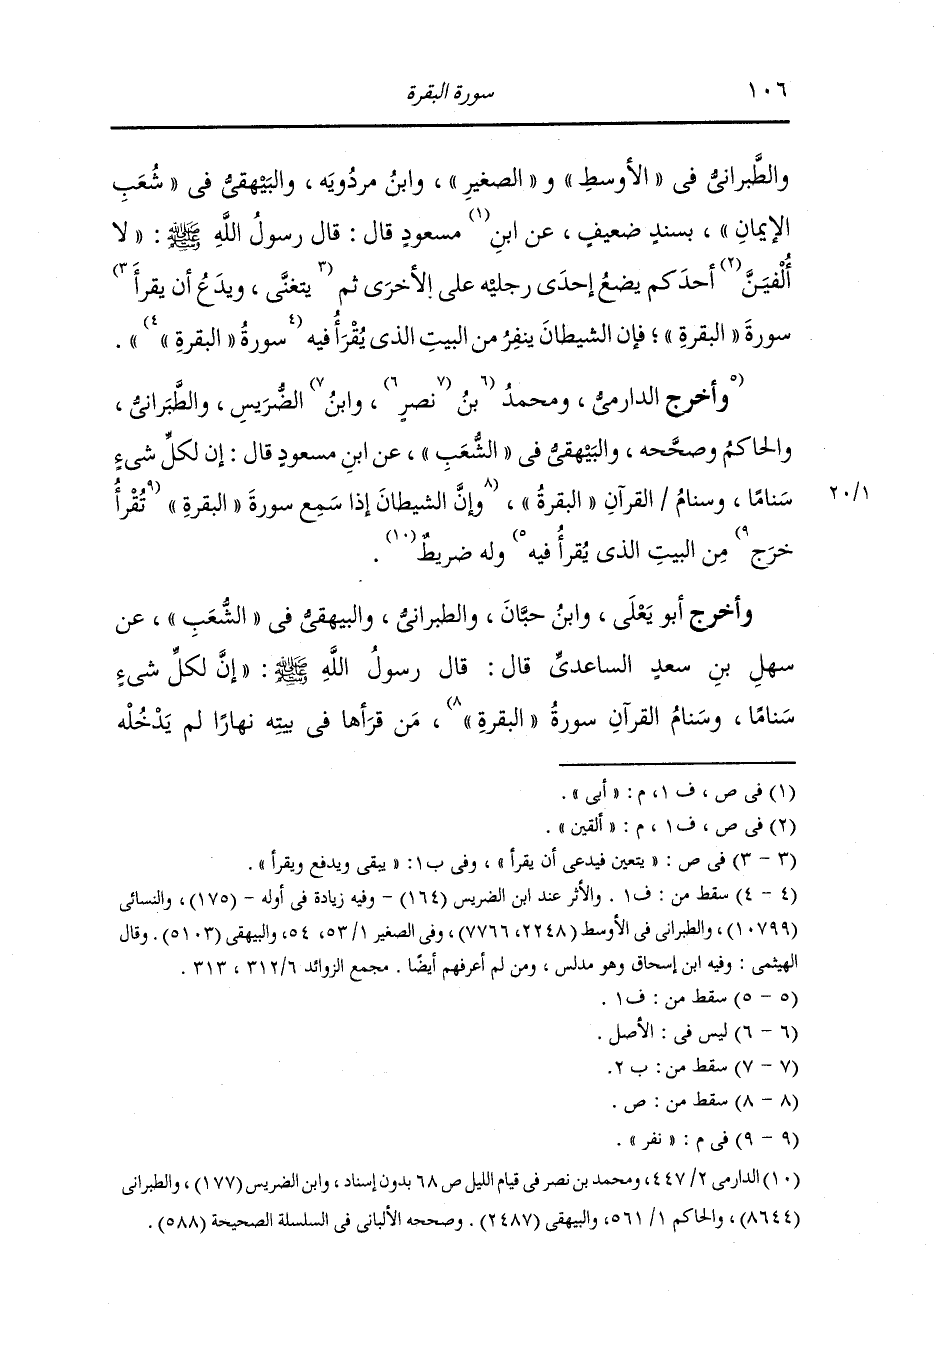 ١٠٦ سورة البقرة
والطَّبرانىُّ فى « الأوسطِ » و « الصغيرِ » ، وابنُ مردُويَه ، والبَيْهقىُّ فى « شُعَبِ
الإيمانِ » ، بسندٍ ضعيفٍ ، عن ابنِ(١) مسعودٍ قال : قال رسولُ اللَّهِ ﷺ : « لا
أُلْفيَنَّ(٢) أحدَكم يضعُ إحدَى رجليْه على الأخرَى ثم (٣ يتغنَّى ، ويدَعُ أن يقرأَ ٣)
سورةَ « البقرةِ » ؛ فإن الشيطانَ ينفِرُ من البيتِ الذى يُقْرَأُ فيه (٤ سورةُ « البقرةِ » ٤) » .
(٥ وأخرج الدارمىُّ ، ومحمدُ (٦ بنُ (٧ نصرٍ ٦) ، وابنُ ٧) الضُّرَيسِ ، والطَّبَرانىُّ ،
والحاكمُ وصحَّحه ، والبَيْهقىُّ فى « الشُّعَبِ » ، عن ابنِ مسعودٍ قال : إن لكلِّ شىءٍ
سَنامًا ، وسنامُ / القرآنِ « البقرةُ » ، (٨ وإنَّ الشيطانَ إذا سَمِع سورةَ « البقرةِ » (٩ تُقْرأُ ٢٠/١
خرَج ٩) مِن البيتِ الذى يُقرأُ فيه ٥) وله ضريطٌ(١٠) .
وأخرج أبو يَعْلَى ، وابنُ حبَّانَ ، والطبرانىُّ ، والبيهقىُّ فى « الشُّعَبِ » ، عن
سهلِ بنِ سعدٍ الساعدىِّ قال : قال رسولُ اللَّهِ ﷺ : « إنَّ لكلِّ شىءٍ
سَنامًا ، وسَنامُ القرآنِ سورةُ « البقرةِ » ٨) ، مَن قرَأها فى بيتِه نهارًا لم يَدْخُلْه
(١) فى ص ، ف ١، م : « أبى » .
(٢) فى ص ، ف١ ، م : « ألقين » .
(٣ - ٣) فى ص : « يتعين فيدعى أن يقرأ » ، وفى ب١: « يبقى ويدفع ويقرأ » .
(٤ - ٤) سقط من : ف١ . والأثر عند ابن الضريس (١٦٤) - وفيه زيادة فى أوله - (١٧٥) ، والنسائى
(١٠٧٩٩) ، والطبرانى فى الأوسط (٢٢٤٨، ٧٧٦٦) ، وفى الصغير ٥٣/١، ٥٤، والبيهقى (٥١٠٣) . وقال
الهيثمى : وفيه ابن إسحاق وهو مدلس ، ومن لم أعرفهم أيضًا . مجمع الزوائد ٣١٢/٦ ، ٣١٣ .
(٥ - ٥) سقط من : ف١ .
(٦ - ٦) ليس فى : الأصل .
(٧ - ٧) سقط من : ب ٢.
(٨ - ٨) سقط من : ص .
(٩ - ٩) فى م : « نفر » .
(١٠) الدارمى ٢/ ٤٤٧، ومحمد بن نصر فى قيام الليل ص ٦٨ بدون إسناد ، وابن الضريس (١٧٧) ، والطبرانى
(٨٦٤٤) ، والحاكم ١/ ٥٦١، والبيهقى (٢٤٨٧) . وصححه الألبانى فى السلسلة الصحيحة (٥٨٨) .